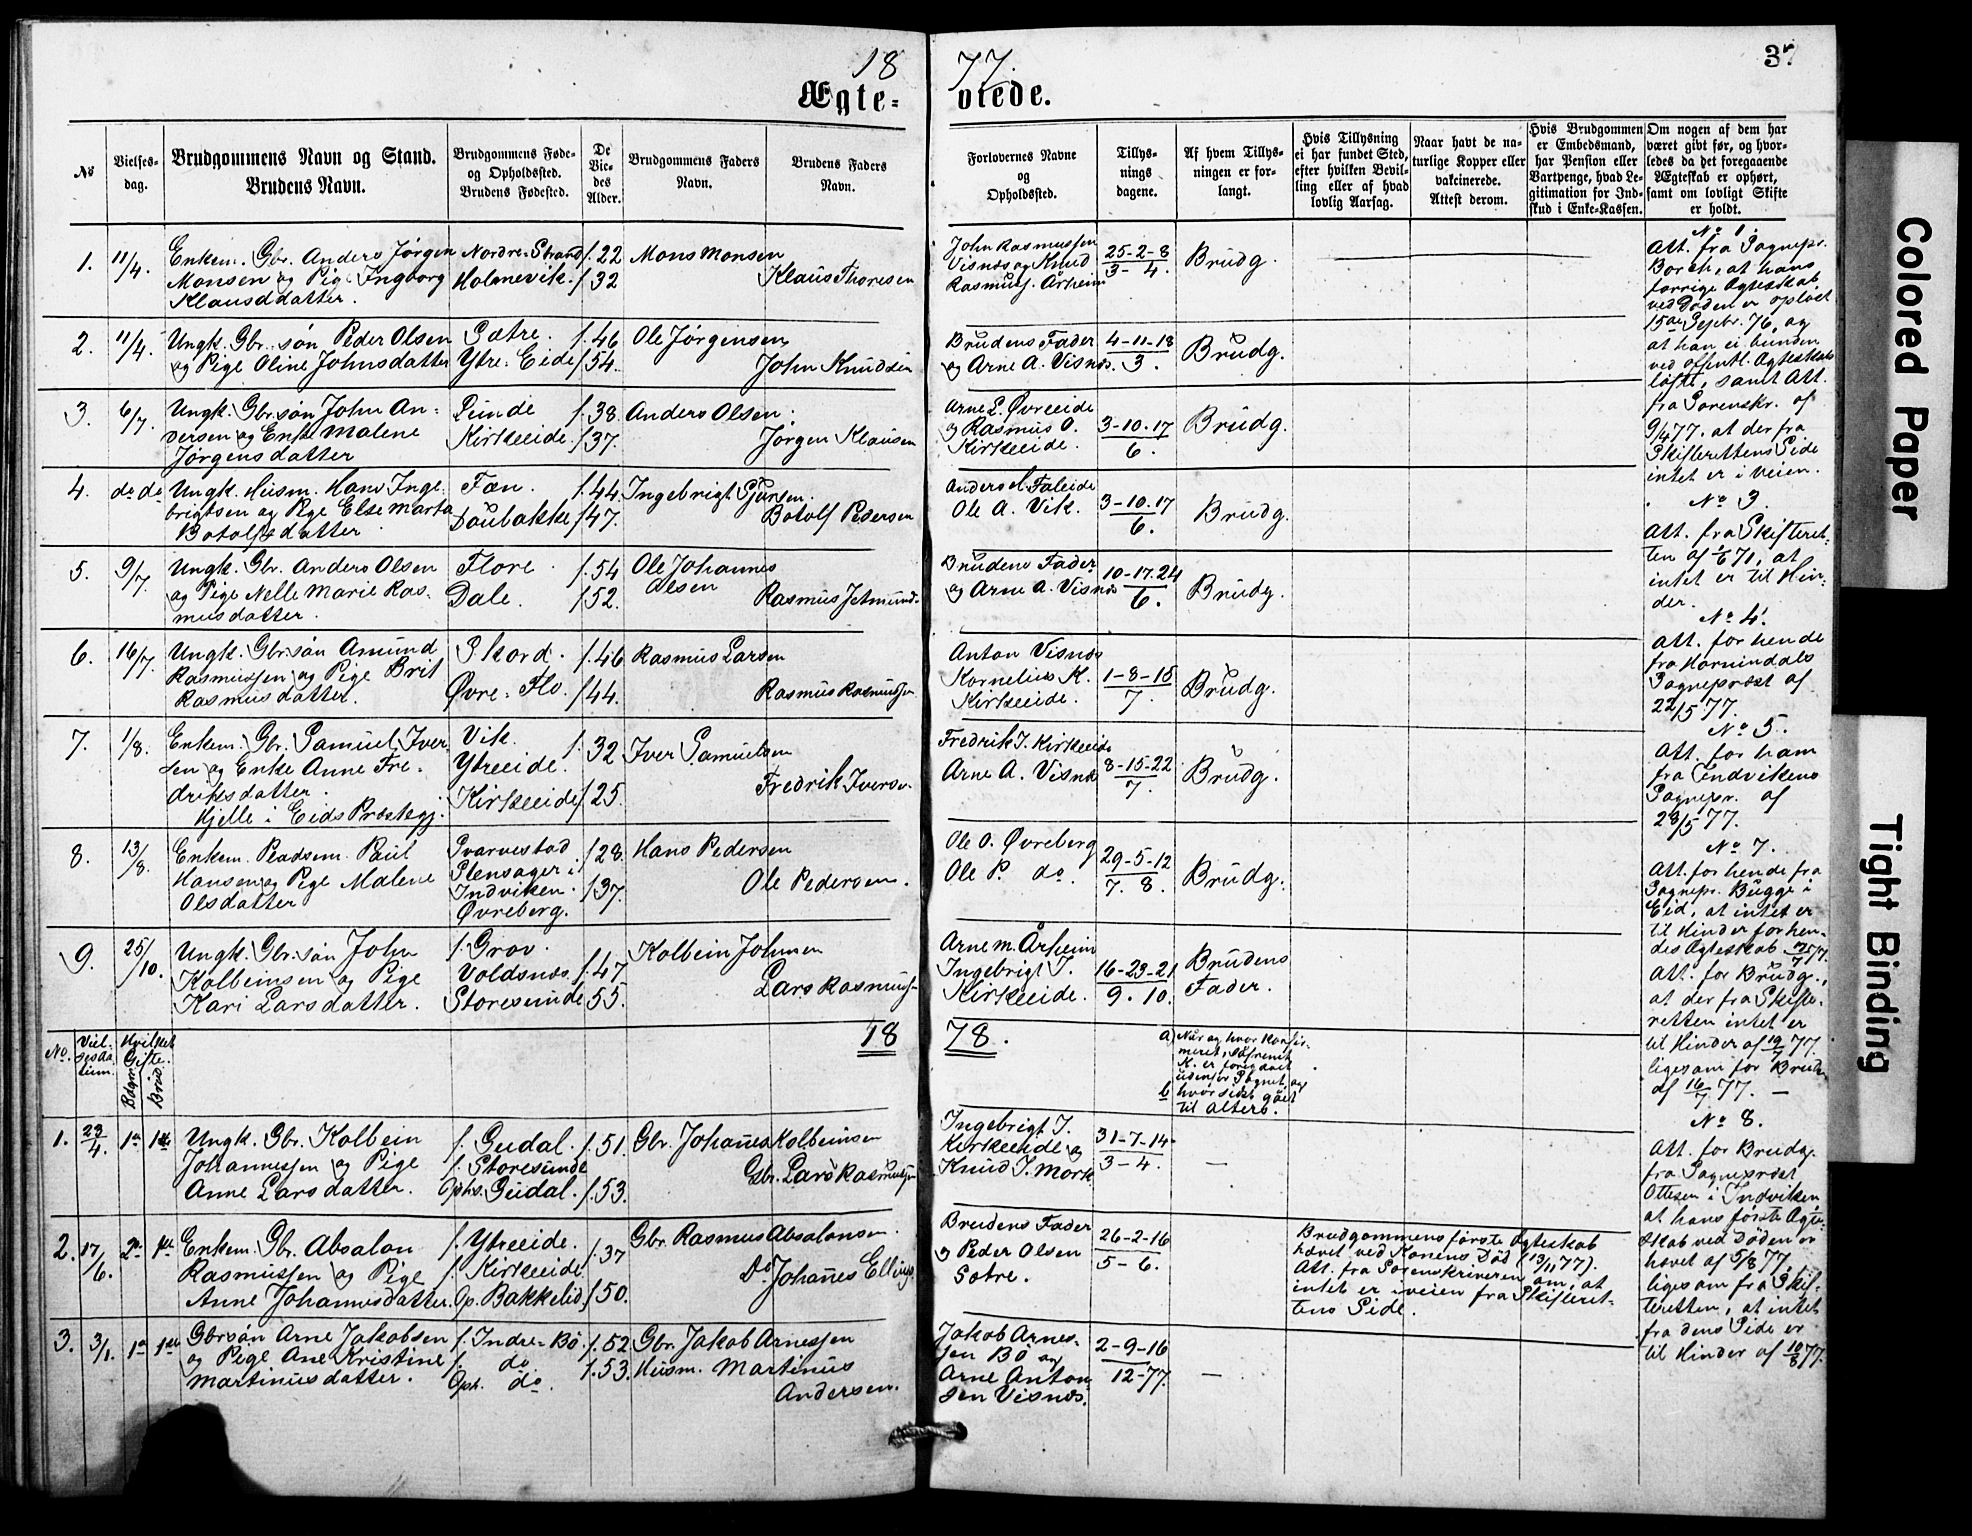 18 77. 37
Ægte- viede.
No
Vielses-
dag.
Brudgommens Navn og Stand.
Brudens Navn.
Brudgommens Føde-
og Opholdssted.
Brudens Fødested.
De
Vie-
des
Alder.
Brudgommens Faders
Navn.
Brudens Faders
Navn.
Forlovernes Navne
og
Opholdssted.
Tillys-
nings
dagene.
Af hvem Tillys-
ningen er for-
langt.
Hvis Tillysning
ei har fundet Sted,
efter hvilken Bevil-
ling eller af hvad
lovlig Aarsag.
Naar havt de na-
turlige Kopper eller
vakcinerede.
Attest derom.
Hvis Brudgommen
er Embedsmand,
har Pension eller
Vartpenge, hvad Le-
gitimation for Ind-
skud i Enke-Kassen.
Om nogen af dem har
været givt før, og hvor-
ledes da det foregaaende
Ægteskab er ophørt,
samt om lovligt Skifte
er holdt.
1. 11/4.
Enkem. Gbr. Anders Jørgen
Monsen og Pig. Ingborg
Klausdatter.
Nordre-Strand
Holmevik.
f. 22
f 32
Mons Monsen
Klaus Thoresen
John Rasmussen
Visnæs og Knud
Rasmus. Årheim
25-2-8
3- 4.
Brudg.
2. 11/4.
Ungk. Gbr. søn Peder Olsen
og Pige Oline Johnsdatter
Sætre.
Ytre-Eide
f. 46
f 54.
Ole Jørgensen
John Knudsen
Brudens Fader
og Arne A. Visnæs.
4-11-18
3.
Brudg.
3. 6/7.
Ungk. Gbr. søn John An-
dersen og Enke Malene
Jørgensdatter
Sunde
Kirkeeide
f. 38.
f 37.
Anders Olsen.
Jørgen Klausen
Arne L. Øvreeide
og Rasmus O.
Kirkeeide.
3-10-17
6.
Brudg.
4. do do
Ungk. Husm. Hans Inge-
brigtsen og Pige Else Marta
Botolfsdatter
Fæn.
Daubakke
f. 44.
f 47.
Ingebrigt Sjursen.
Botolf Pedersen
Anders M. Faleide
Ole A. Vik.
3-10-17
6.
Brudg.
5. 9/7.
Ungk. Gbr. Anders Olsen
og Pige Nelle Marie Ras-
musdatter.
Flore.
Dale.
f. 54
f 52.
Ole Johannes
Olsen
Rasmus Jetmund-
Brudens Fader
og Arne A. Visnæs
10-17-24
6.
Brudg.
6. 16/7.
Ungk. Gbr. søn Amund
Rasmussen og Pige Brit
Rasmusdatter.
Skord.
Øvre-Flo.
f. 46
f 44.
Rasmus Larsen
Rasmus Rasmussen
Anton Visnæs
Kornelius K.
Kirkeeide.
1-8-15
7.
Brudg.
7. 1/8.
Enkem. Gbr. Samuel Iver-
sen og Enke Anne Fre-
driksdatter.
Hjelle i Eids Præstegj.
Vik.
Ytreeide.
Kirkeeide
f. 32
f 25.
Iver Samuelsen
Fredrik Iversn.
Fredrik I. Kirkeeide
Arne A. Visnæs
8-15-22
7.
Brudg.
8. 13/8.
Enkem. Pladsem. Paul
Hansen og Pige Malene
Olsdatter
Svarvestad
Stensager i
Indviken.
Øvreberg.
f 28.
f 37.
Hans Pedersen
Ole Pedersen.
Ole O. Øvreberg
Ole P. do.
29-5-12
7. 8.
Brudg.
9. 25/10.
Ungk. Gbr. søn John
Kolbeinsen og Pige
Kari Larsdatter.
f. Grov.
Voldsnæs.
Storesunde
f. 47
55.
Kolbein Johnsen
Lars Rasmus-
Arne M. Årheim
Ingebrigt I.
Kirkeeide.
16-23-21
9. 10.
Brudens
Fader.
18 78.
No.
Viel-
sesda-
tum.
Hvilket
Gifte.
Bdgm.
Brud.
a) Når og hvor konfir-
meret, såfremt
K. er foregået
udenfor Sognet, og
b hvor sidst gået
til alters.
1. 23/4. 1te 1te
Ungk. Gbr. Kolbein
Johannessen og Pige
Anne Larsdatter.
f. Gudal.
f. Storesunde
Ophs. Gudal.
f. 51.
f. 53.
Gbr. Johannes Kolbeinsen
Gbr. Lars Rasmussen
Ingebrigt I.
Kirkeeide og
Knud I. Mork
31-7-14-
3-4.
—
2. 17/6. 2te 1te
Enkem. Gbr. Absalon
Rasmussen og Pige
Anne Johannesdatter.
f. Ytreeide.
f. Kirkeeide
Op. Bakkelid.
f. 37
f 50.
Gbr. Rasmus Absalonsen.
Do Johannes Ellings
Brudens Fader
og Peder Olsen
Sætre.
26-2-16
5-6.
Brudgommens første Ægteskab
hævet ved Konens Død (13/11 77).
Att. fra Sorenskriveren om, at
intet er iveien fra Skifteret-
tens Side.
3. 3/1. 1te 1te
Gbrsøn Arne Jakobsen
og Pige Ane Kristine
Martinusdatter.
f. Indre-Bø.
f. do
Oph. do.
f. 52
f. 53.
Gbr. Jakob Arnessen
Husm. Martinus
Andersen.
Jakob Arnes-
sen Bø og
Arne Anton-
sen Visnæs.
2-9-16
12-77.
—
No 1.
Att. fra Sognepr.
Borch, at hans
forrige Ægteskab
ved Døden er opløst
15de Septbr. 76, og
at han ei bunden
ved offentl. Ægteskabs
løfte, samt Att.
fra Sorenskr. af
9/4 77. at der fra
Skifterettens Side
intet er i veien.
No 3.
Att. fra Skifteret-
ten af 1/6 71, at
intet er til Hin-
der.
No 4.
Att. for hende
fra Hornindals
Sognepræst af
22/5 77.
No 5.
Att. for ham
fra Indvikens
Sognepr. af
28/5 77.
No 7.
Att. for hende fra
Sognepr. Bugge i
Eid, at intet er
til Hinder for hen-
des Ægteskab
Att. for Brudg.,
at der fra Skifte-
retten intet er
til Hinder af 19/7 77.
ligesom for Bruden
af 16/7 77. —
No 8.
Att. for Brudg.
fra Sognepræst
Ottesen i Indviken
at hans første Ægte-
skab ved Døden er
hævet af 5/8 77,
ligesom fra Skif-
teretten, at intet
fra dens Side er
til Hinder af 10/8 77.
Colored Paper
Tight Binding